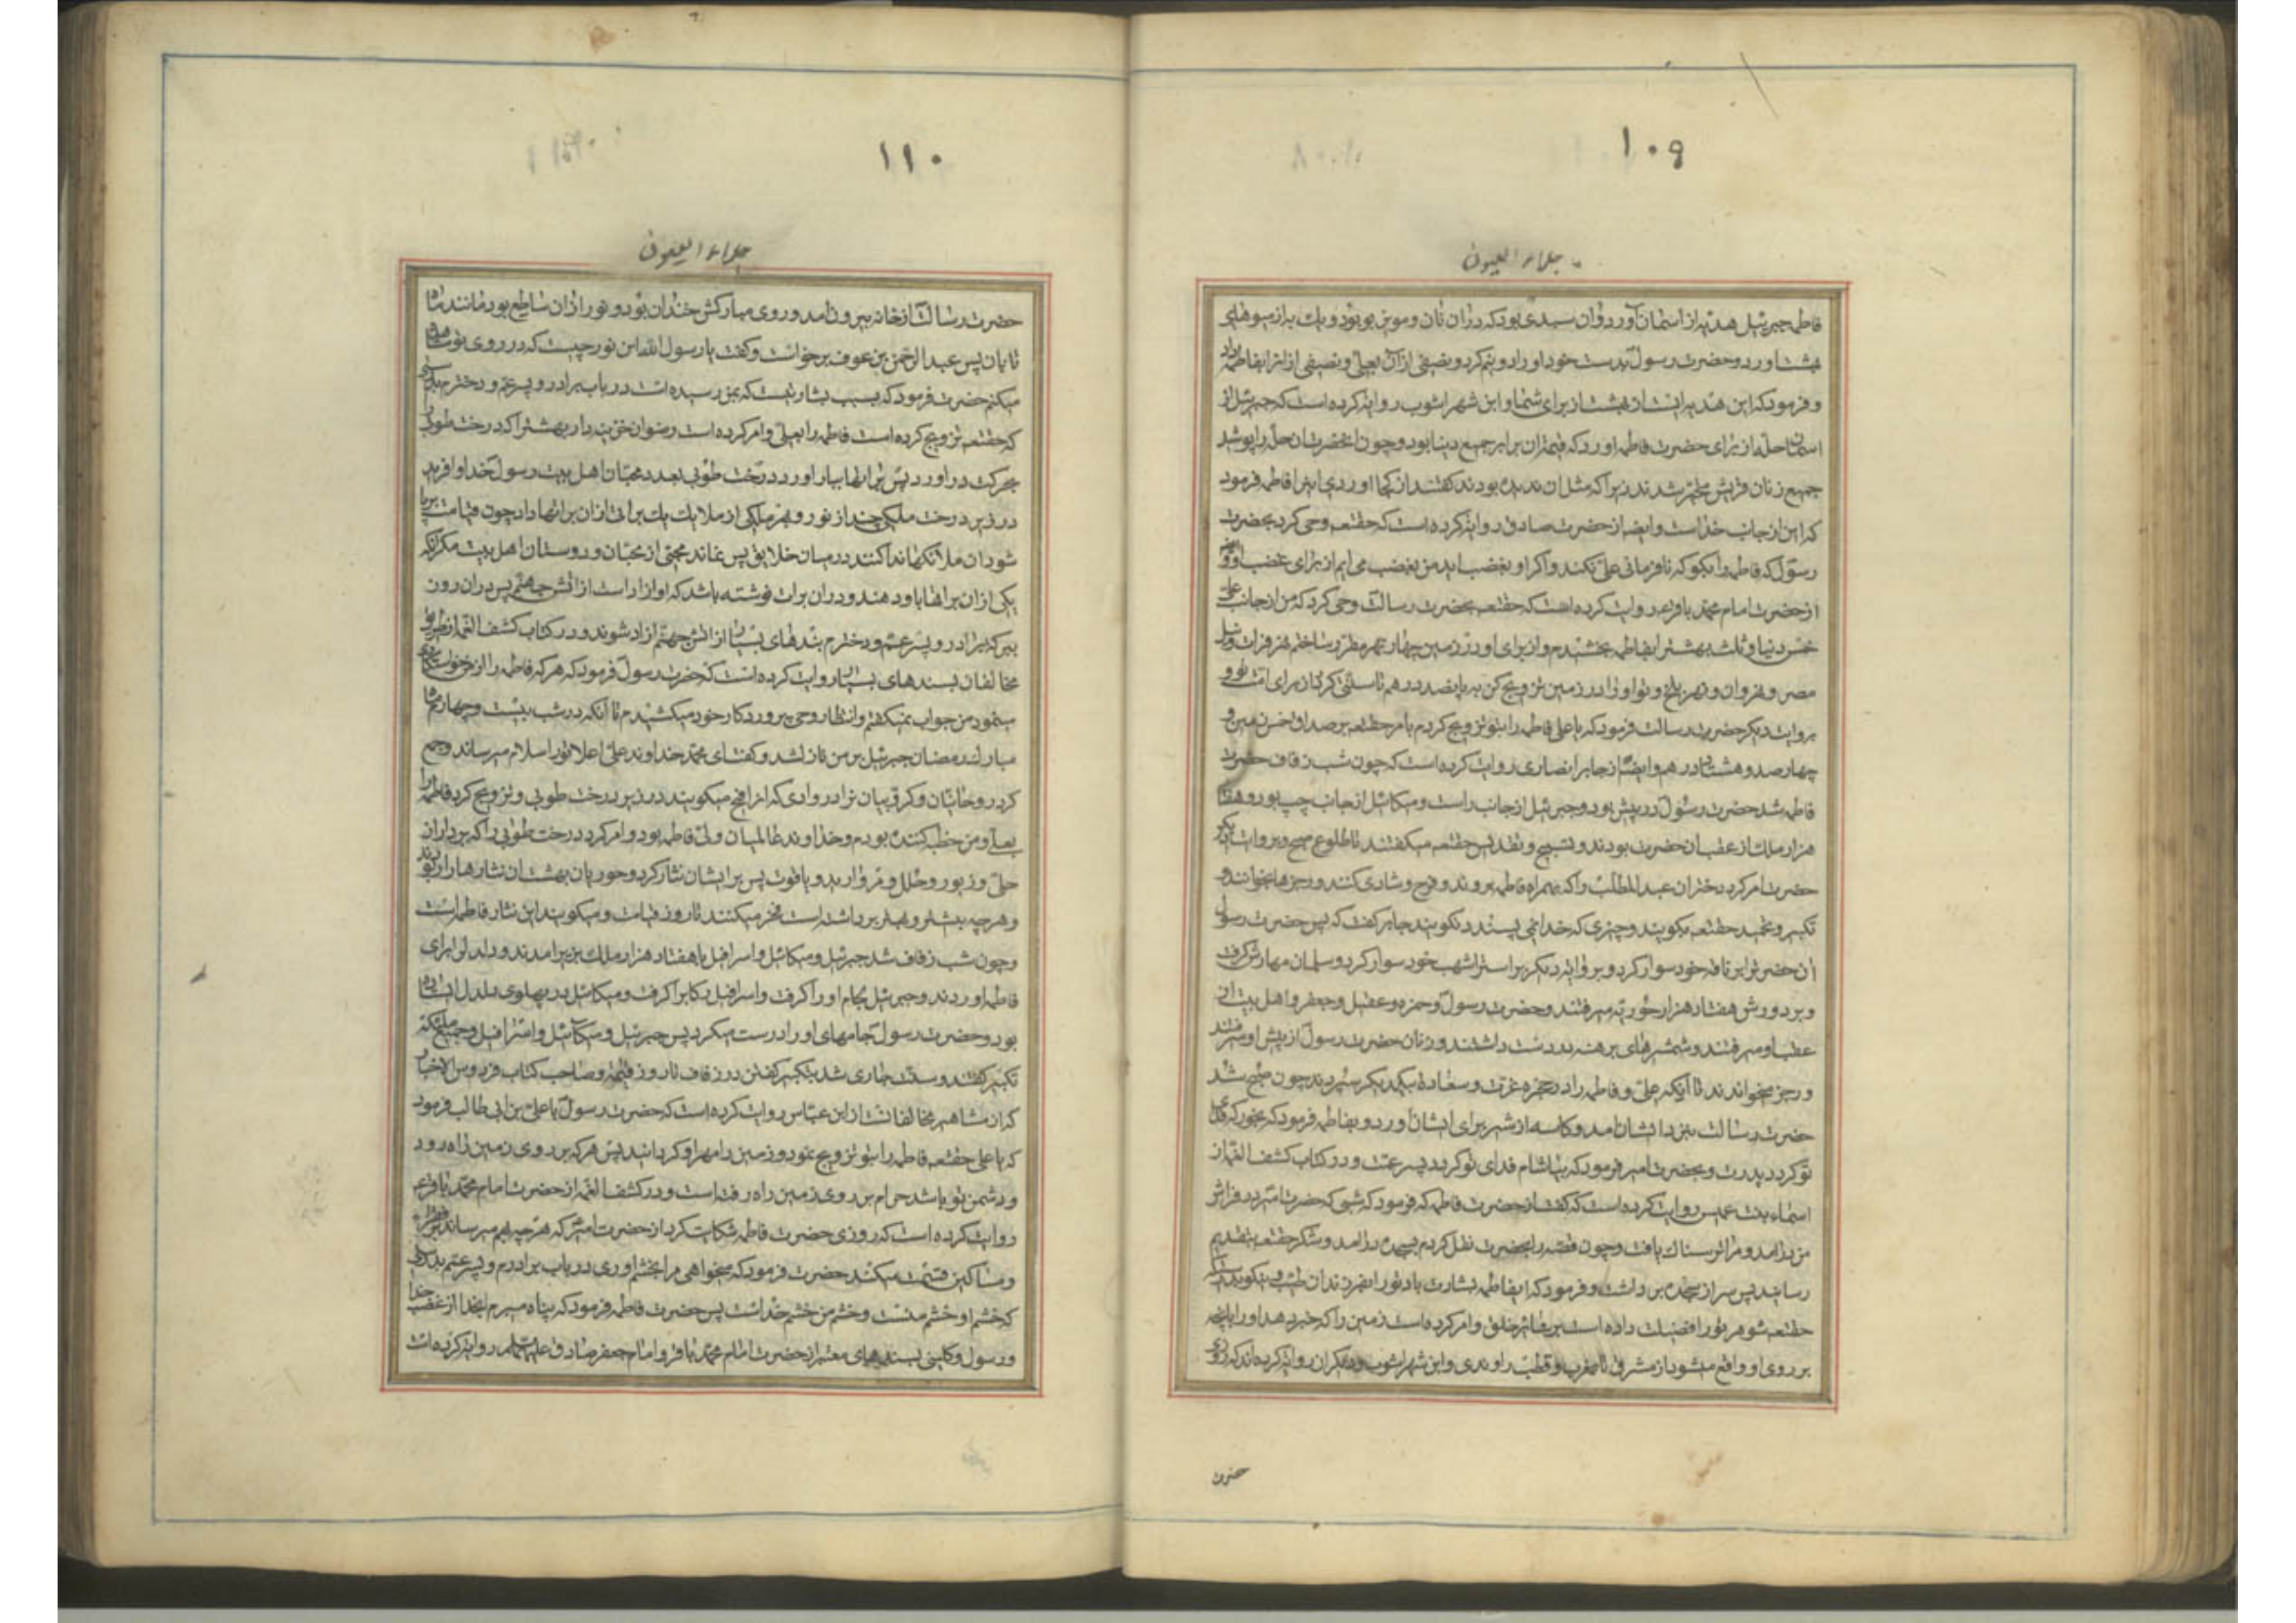 ١٠٩
جلاء العیون
فاطمه جبرئیل هدیه از اسمان آورد و آن سبدی بود که در آن نان و مویز بود و یک به از میوهای
بهشت اورد و حضرت رسول بدست خود او را دو نیم کرد و نصفی از آن بعلی و نصفی از انرا بفاطمه داد
و فرمود که این هدیه ایست از بهشت از برای شما و ابن شهراشوب روایة کرده است که جبرئیل از
اسمان حله از برای حضرت فاطمه اورد که قیمت ان برابر جمیع دنیا بود و چون انحضرت ان حله را پوشید
جمیع زنان قریش متحیر شدند زیرا که مثل ان ندیده بودند گفتند از کجا اوردی اینرا فاطمه فرمود
که این از جانب خداست و ایضا از حضرت صادق روایة کرده است که حقتعه وحی کرد بحضرت
رسول که فاطمه را بگو که نافرمانی علی نکند و اگر او بغضب اید من بغضب می ایم از برای غضب او و
از حضرت امام محمد باقر ع روایت کرده است که حقتعه بحضرت رسالت وحی کرد که من از جانب علی
خمس دنیا و ثلث بهشت را بفاطمه بخشیدم و از برای او در زمین چهار نهر مقرر ساختم نهر فرات و نیل
مصر و نهروان و نهر بلخ و تو او را در زمین تزویج کن به پانصد درهم تا سنتی گردد از برای امت تو و
بروایت دیگر حضرت رسالت فرمود که یا علی فاطمه را بتو تزویج کردم بامر حقتعه بر صداق خمس زمین و
چهار صد و هشتاد درهم و ایضا از جابر انصاری روایت کرده است که چون شب زفاف حضرت
فاطمه شد حضرت رسول در پیش بود و جبرئیل از جانب راست و میکائیل از جانب چپ بود و هفتاد
هزار ملک از عقب ان حضرت بودند و تسبیح و تقدیس حقتعه میکفتند تا طلوع صبح و بروایت دیگر
حضرت امر کرد دختران عبد المطلب را که بهمراه فاطمه بروند و فرح و شادی کنند و رجزها بخوانند و
تکبیر و تحمید حقتعه بگویند و چیزی که خدا نمی پسندد نگویند جابر گفت که پس حضرت رسول
ان حضرت را بر ناقه خود سوار کرد و بروایة دیگر بر استر اشهب خود سوار کرد و سلمان مهارش گرفت
و بر دورش هفتاد هزار حوریه میرفتند و حضرت رسول و حمزه و عقیل و جعفر و اهل بیت از
عقب او میرفتند و شمشیرهای برهنه در دست داشتند و زنان حضرت رسول از پیش او میرفتند
و رجز میخواندند تا آنکه علی و فاطمه را در حجره عزت و سعادة بیکدیگر سپردند چون صبح شد
حضرت رسالت بنزد ایشان آمد و کاسه از شیر برای ایشان اورد و بفاطمه فرمود که بخور که فدای
تو گردد پدرت و بحضرت امیر فرمود که بیاشام فدای تو گردد پسر عمت و در کتاب کشف الغمه از
اسماء بنت عمیس روایت کرده است که گفت از حضرت فاطمه که فرمود که شبی که حضرت امیر در فراش
من درامد و مرا ترسناک یافت و چون قصه را بحضرت نقل کردم بسجده درامد و شکر حقتعه بتقدیم
رسانید پس سر از سجده برداشت و فرمود که ایفاطمه بشارت باد تو را بفرزندان طیب و نیکو بدرستیکه
حقتعه شوهر تو را فضیلت داده است بر سایر خلق و امر کرده است زمین را که خبر دهد او را بانچه
بر روی او واقع میشود از مشرق تا مغرب و قطب راوندی و ابن شهراشوب و دیگران روایة کرده اند که روزی
حضرت
١١٠
جلاء العیون
حضرت رسالت از خانه بیرون آمد و روی مبارکش خندان بود و نور از ان ساطع بود مانند ماه
تابان پس عبد الرحمن بن عوف برخواست و گفت یا رسول الله این نور چیست که در روی تو مشاهده
میکنم حضرت فرمود که بسبب بشارتیست که بمن رسیده است در باب برادر و پسر عم و دخترم بدرستی
که حقتعه تزویج کرده است فاطمه را بعلی و امر کرده است رضوان خزینه دار بهشت را که درخت طوبی را
بحرکت دراورد پس براتها ببار اورد درخت طوبی بعدد محبان اهل بیت رسول خدا و افرید
در زیر درخت ملکی چند از نور و بهر ملکی از ملایک یک براتی از ان براتها داد چون قیامت برپا
شود ان ملائکها ندا کنند در میان خلایق پس نماند محبی از محبان و دوستان اهل بیت مگر انکه
یکی از ان براتها باو دهند و در ان برات نوشته باشد که او ازاد است از اتش جهنم پس در ان روز
ببرکة برادر و پسر عم و دخترم بندهای بسیار از اتش جهنم ازاد شوند و در کتاب کشف الغمه از طریق
مخالفان بسندهای بسیار روایت کرده است که حضرت رسول فرمود که هر که فاطمه را از من خواستکاری
مینمود من جواب نمیگفتم و انتظار وحی پروردکار خود میکشیدم تا آنکه در شب بیست و چهارم ماه
مبارک رمضان جبرئیل بر من نازل شد و گفت ای محمد خداوند علی اعلا تو را سلام میرساند و جمع
کرد روحانیان و کروبیان را در وادی که انرا افیح میکویند در زیر درخت طوبی و تزویج کرد فاطمه را
بعلی و من خطبه کننده بودم و خداوند عالمیان ولی فاطمه بود و امر کرد درخت طوبی را که برداران
حلی و زیور و حلل و مروارید و یاقوت پس بر ایشان نثار کرد و حوریان بهشت ان نثارها را ربودند
و هر چه بیشتر و بهتر برداشته است فخر میکنند تا روز قیامت و میکویند این نثار فاطمه است
و چون شب زفاف شد جبرئیل و میکائیل و اسرافیل با هفتاد هزار ملک بزیر امدند و دلدل را برای
فاطمه اوردند و جبرئیل لجام او را گرفت و اسرافیل رکابرا گرفت و میکائیل در پهلوی دلدل ایستاده
بود و حضرت رسول جامهای او را درست میکرد پس جبرئیل و میکائیل و اسرافیل و جمیع ملئکه
تکبیر گفتند و سنت جاری شد بتکبیر گفتن در زفاف تا روز قیمة و صاحب کتاب فردوس الاخبار
که از مشاهیر مخالفانست از ابن عباس روایت کرده است که حضرت رسول با علی بن ابی طالب فرمود
که یا علی حقتعه فاطمه را بتو تزویج نمود و زمین را مهر او کردانید پس هر که بر روی زمین راه رود
و دشمن تو باشد حرام بر روی زمین راه رفته است و در کشف الغمه از حضرت امام محمد باقر ع
روایت کرده است که روزی حضرت فاطمه شکایت کرد از حضرت امیر که هر چه بهم میرساند بفقرا
و مساکین قسمت میکند حضرت فرمود که میخواهی مرا بخشم اوری در باب برادرم و پسر عمم بدرستی
که خشم او خشم منست و خشم من خشم خداست پس حضرت فاطمه فرمود که پناه میبرم بخدا از غضب خدا
و رسول و کلینی بسندهای معتبر از حضرت امام محمد باقر و امام جعفر صادق علیهما السلام روایة کرده است